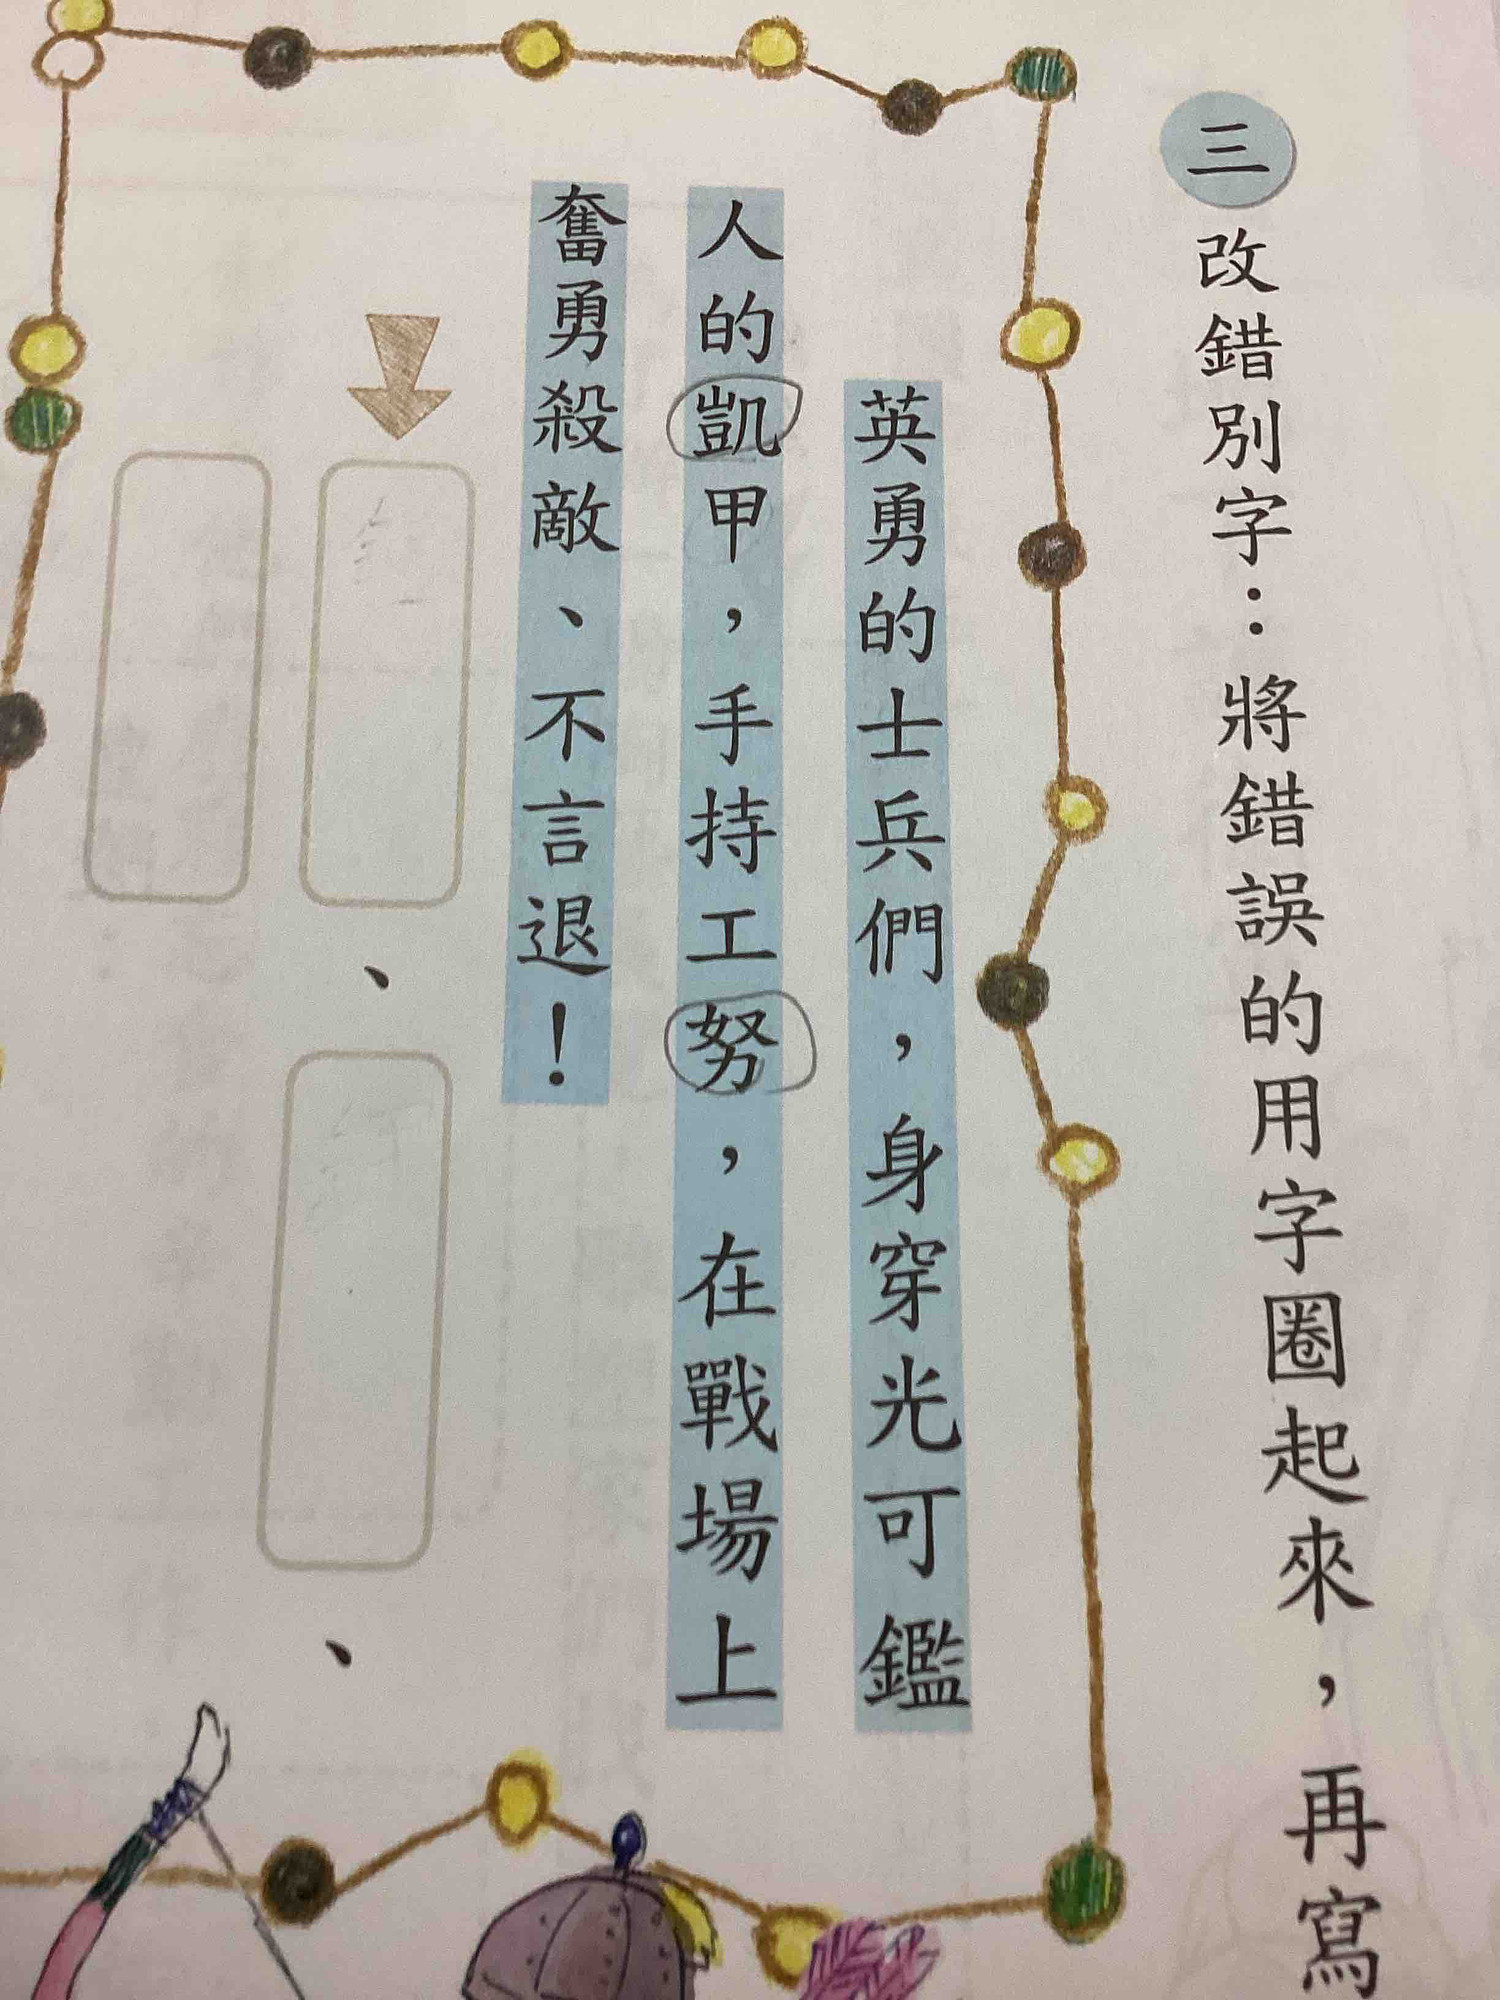 三 改錯別字：將錯誤的用字圈起來，再寫
英勇的士兵們，身穿光可鑑
人的凱甲，手持工努，在戰場上
奮勇殺敵、不言退！
、
、